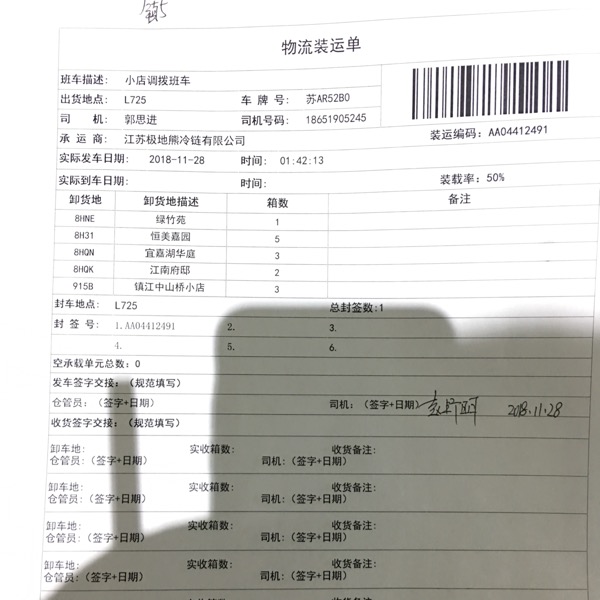 镇5
物流装运单
班车描述: 小店调拨班车
出货地点: L725 车 牌 号: 苏AR52B0
司 机: 郭思进 司机号码: 18651905245
承 运 商: 江苏极地熊冷链有限公司 装运编码: AA04412491
实际发车日期: 2018-11-28 时间: 01:42:13
实际到车日期: 时间: 装载率: 50%
卸货地 卸货地描述 箱数 备注
8HNE 绿竹苑 1
8H31 恒美嘉园 5
8HQN 宜嘉湖华庭 3
8HQK 江南府邸 2
915B 镇江中山桥小店 3
封车地点: L725 总封签数:1
封 签 号: 1.AA04412491 2. 3.
4. 5. 6.
空承载单元总数: 0
发车签字交接: (规范填写)
仓管员: (签字+日期) 司机: (签字+日期) 2018.11.28
收货签字交接: (规范填写)
卸车地: 实收箱数: 收货备注:
仓管员: (签字+日期) 司机: (签字+日期)
卸车地: 实收箱数: 收货备注:
仓管员: (签字+日期) 司机: (签字+日期)
卸车地: 实收箱数: 收货备注:
仓管员: (签字+日期) 司机: (签字+日期)
卸车地: 实收箱数: 收货备注:
仓管员: (签字+日期) 司机: (签字+日期)